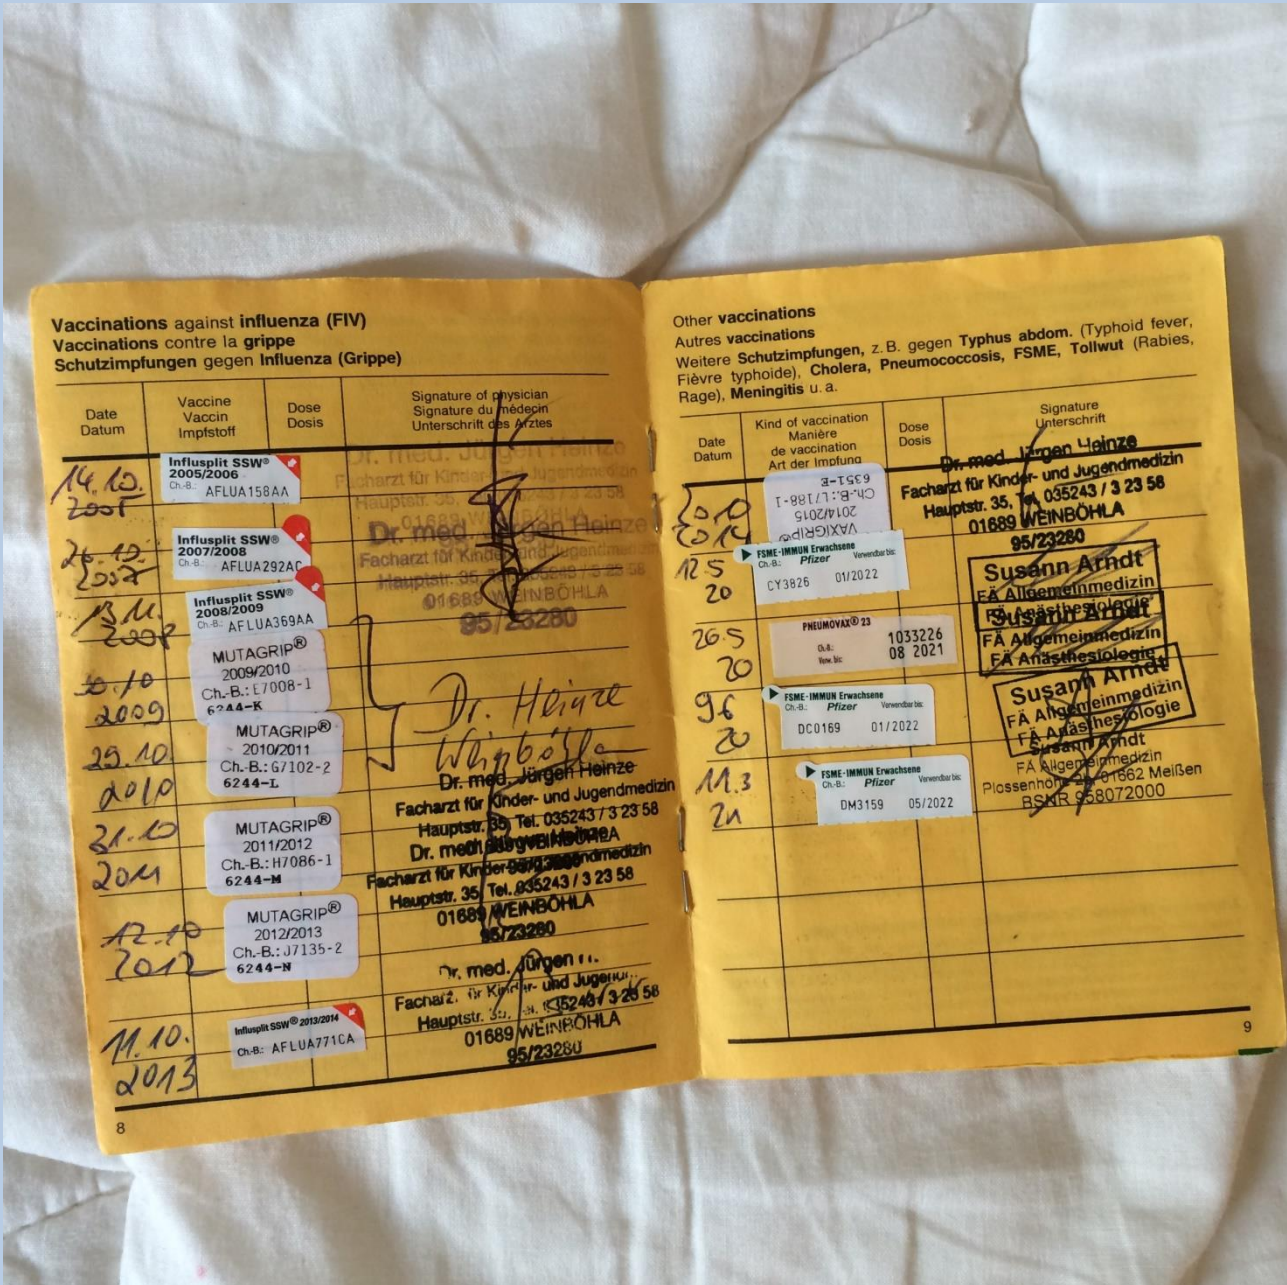 Vaccinations against influenza (FIV)
Vaccinations contre la grippe
Schutzimpfungen gegen Influenza (Grippe)
Date
Datum
Vaccine
Vaccin
Impfstoff
Dose
Dosis
Signature of physician
Signature du médecin
Unterschrift des Arztes
14.10.
2005
Influsplit SSW®
2005/2006
Ch.-B.: AFLUA158AA
Dr. med. Jürgen Heinze
Facharzt für Kinder- und Jugendmedizin
Hauptstr. 35, 035243 / 3 23 58
01689 WEINBÖHLA
2007
Influsplit SSW®
2007/2008
Ch.-B.: AFLUA292AC
Dr. med. Jürgen Heinze
Facharzt für Kinder- und Jugendmedizin
Hauptstr. 35 035243 / 3 23 58
01689 WEINBÖHLA
95/23280
13.11.
2008
Influsplit SSW®
2008/2009
Ch.-B.: AFLUA369AA
30.10
2009
MUTAGRIP®
2009/2010
Ch.-B.: E7008-1
6244-K
Dr. Heinze
Weinböhla
29.10.
2010
MUTAGRIP®
2010/2011
Ch.-B.: G7102-2
6244-L
Dr. med. Jürgen Heinze
Facharzt für Kinder- und Jugendmedizin
Hauptstr. 35, Tel. 035243 / 3 23 58
21.10
2011
MUTAGRIP®
2011/2012
Ch.-B.: H7086-1
6244-M
Dr. med.
Facharzt für Kinder- und Jugendmedizin
Hauptstr. 35, Tel. 035243 / 3 23 58
01689 WEINBÖHLA
95/23280
12.10
2012
MUTAGRIP®
2012/2013
Ch.-B.: J7135-2
6244-N
11.10.
2013
Influsplit SSW® 2013/2014
Ch.-B.: AFLUA771CA
Dr. med. Jürgen
Kinder- und
Hauptstr. 35243 / 3 23 58
01689 WEINBÖHLA
95/23280
8
Other vaccinations
Autres vaccinations
Weitere Schutzimpfungen, z. B. gegen Typhus abdom. (Typhoid fever,
Fièvre typhoide), Cholera, Pneumococcosis, FSME, Tollwut (Rabies,
Rage), Meningitis u. a.
Date
Datum
Kind of vaccination
Manière
de vaccination
Art der Impfung
Dose
Dosis
Signature
Unterschrift
2014
VAXIGRIP®
2014/2015
Ch.-B.: L7188-1
6351-E
Dr. med. Jürgen Heinze
Facharzt für Kinder- und Jugendmedizin
Hauptstr. 35, Tel. 035243 / 3 23 58
01689 WEINBÖHLA
95/23280
12.5
20
FSME-IMMUN Erwachsene
Ch.-B.: Pfizer Verwendbar bis:
CY3826 01/2022
Susann Arndt
FÄ Allgemeinmedizin
FÄ Anästhesiologie
26.5
20
PNEUMOVAX® 23
Ch.-B.: 1033226
Verw. bis: 08 2021
Susann Arndt
FÄ Allgemeinmedizin
FÄ Anästhesiologie
9.6
20
FSME-IMMUN Erwachsene
Ch.-B.: Pfizer Verwendbar bis:
DC0169 01/2022
Susann Arndt
FÄ Allgemeinmedizin
FÄ Anästhesiologie
11.3
21
FSME-IMMUN Erwachsene
Ch.-B.: Pfizer Verwendbar bis:
DM3159 05/2022
Susann Arndt
FÄ Allgemeinmedizin
Plossenhöhe 01662 Meißen
BSNR 958072000
9